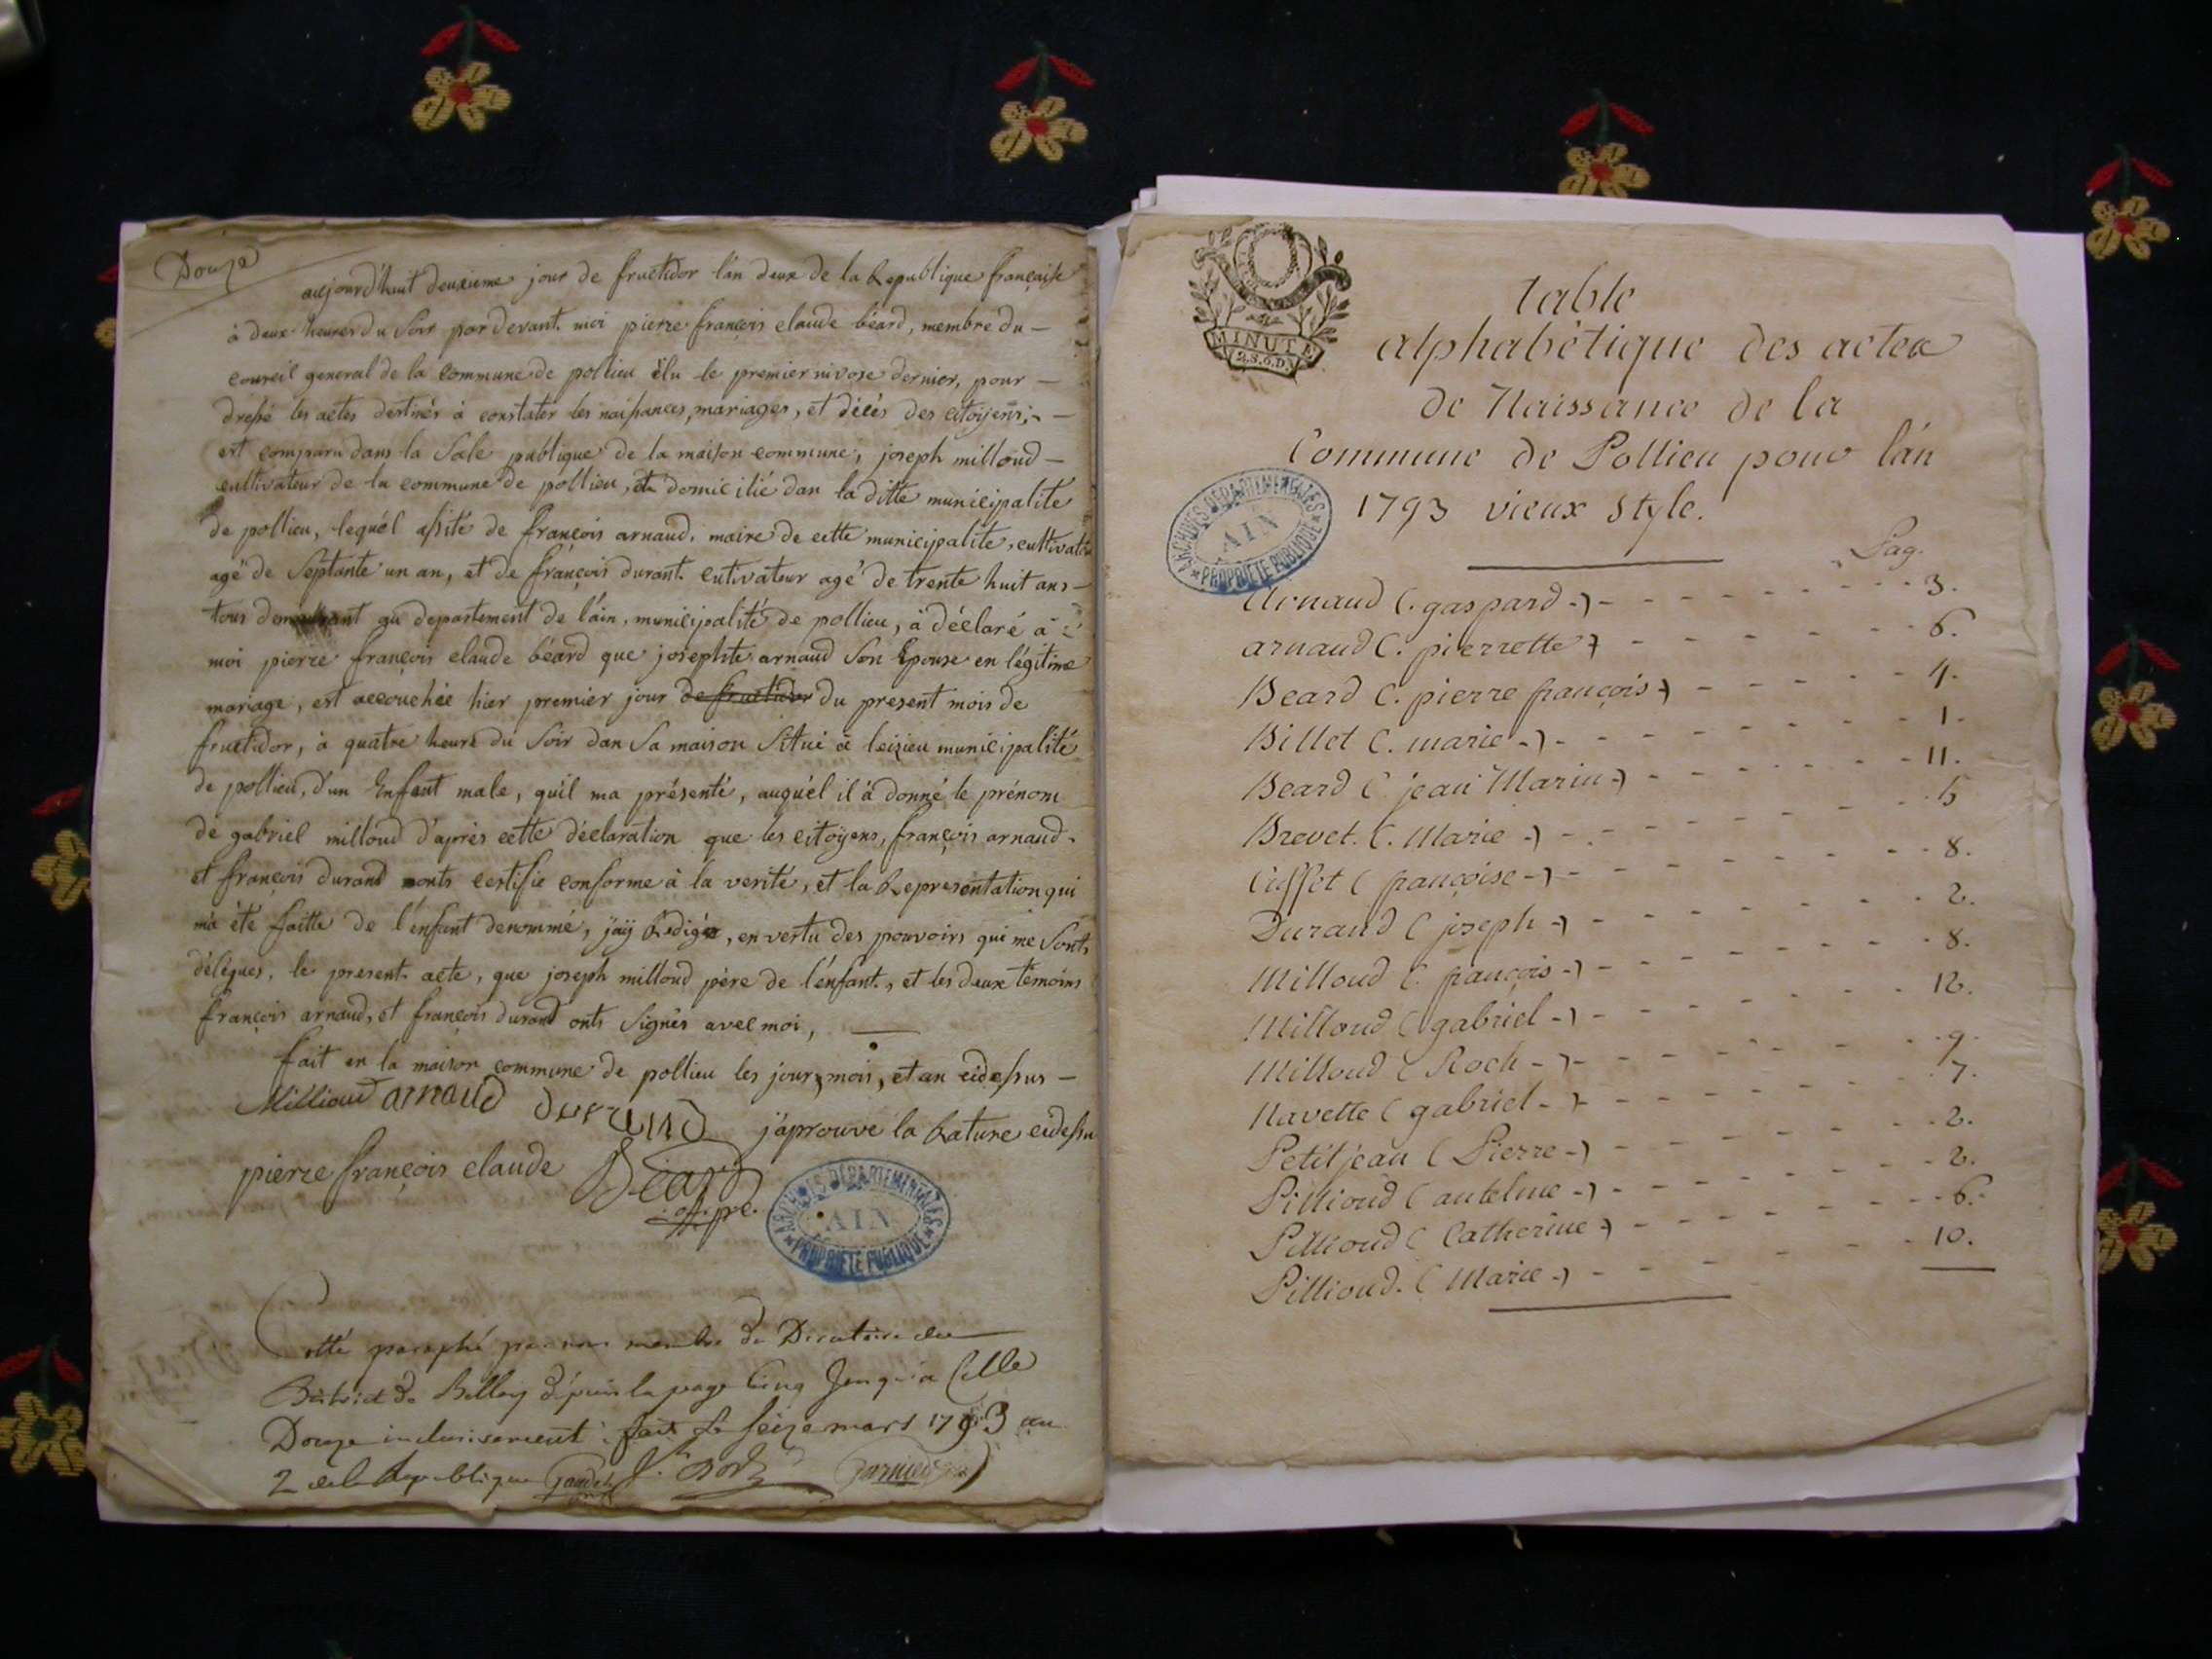 Douze
aujourd'huit deuxieme jour de fructidor l'an deux de la Republique française
à deux heures du soir par devant moi pierre françois claude béard, membre du —
conseil general de la commune de pollieu élu le premier nivose dernier, pour —
dressé les actes destinés à constater les naissances, mariages, et décés des citoyens; —
est comparu dans la Sale publique de la maison commune, joseph milloud —
cultivateur de la commune de pollieu, domicilié dan la ditte municipalité
de pollieu, lequél assité de françois arnaud, maire de cette municipalité, cultivate
agé de Septante un an, et de françois durant cutivateur agé de trente huit ans —
tous demeurant au departement de l'ain, municipalité de pollieu, à déclaré à
moi pierre françois claude béard que josephte arnaud Son Epouse en légitime
mariage, est accouchée hier premier jour de fructidor du present mois de
fructidor, à quatre heure du Soir dan Sa maison Situé à leizieu municipalité
de pollieu, d'un Enfant male, quil ma présenté, auquél il à donné le prénom
de gabriel milloud d'après cette déclaration que les citoyens, françois arnaud
et françois durand onts certifie conforme à la verité, et la Representation qui
m'a été faitte de l'enfant denommé, j'aÿ Redigé, en vertu des pouvoirs qui me Sonts
délégués, le present acte, que joseph milloud père de l'enfant, et les deux témoins
françois arnaud, et françois durand onts Signés avec moi, —
fait en la maison commune de pollieu les jour, mois, et an cidessus —
Millioud arnaud durand j'aprouve la Rature cidessu
pierre françois claude Béard
off. pc.
ARCHIVES DÉPARTEMENTALES
AIN
PROPRIÉTÉ PUBLIQUE
Cotté paraphé par nous membre du Directoire du
District de Belley dépuis la page Cinq Jusqu'a Celle
Douze inclusivement fait le seize mars 1793 an
2 de la Republique
MINUTE
2.S.6.D.
table
alphabétique des actes
de Naissance de la
Commune de Pollieu pour l'án
1793 vieux style.
ARCHIVES DÉPARTEMENTALES
AIN
PROPRIÉTÉ PUBLIQUE
Pag.
Arnaud (. gaspard -) - - - - - - - - 3.
arnaud (. pierrette) - - - - - - - 6.
Beard (. pierre françois) - - - - - - 4.
Billet (. marie -) - - - - - - - - 1.
Beard ( jean Marin -) - - - - - - - 11.
Brevet. (. Marie -) - - - - - - - - 5
Cuffet ( françoise -) - - - - - - - 8.
Durand ( joseph -) - - - - - - - - 2.
Milloud (. françois -) - - - - - - - 8.
Milloud ( gabriel -) - - - - - - - 12.
Milloud ( Roch -) - - - - - - - - 9.
Navette ( gabriel -) - - - - - - - 7.
Petitjean ( Pierre -) - - - - - - - 2.
Pillioud ( antelme -) - - - - - - - 2.
Pillioud ( Catherine) - - - - - - - 6.
Pillioud. ( Marie -) - - - - - - - 10.